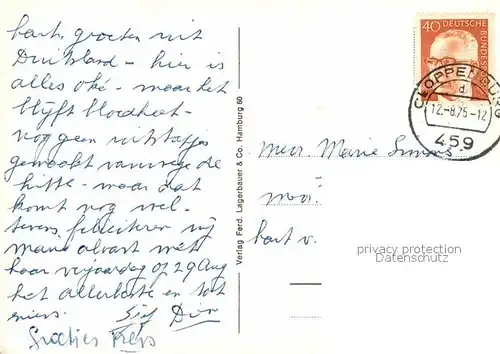 hart. groeten uit
Duitsland – hier is
alles oké. – maar het
blijft bloedheet –
nog geen uitstapjes
gemaakt vanwege de
hitte – maar dat
komt nog wel –
tevens feliciteren wij
Maria alvast met
haar verjaardag op 29 Aug
het allerbeste en tot
ziens.
Groetjes Kees
Verlag Ferd. Lagerbauer & Co. Hamburg 60
40 DEUTSCHE BUNDESPOST
CLOPPENBURG
d
12.-8.75-12
459
Marie
hart v.
privacy protection
Datenschutz